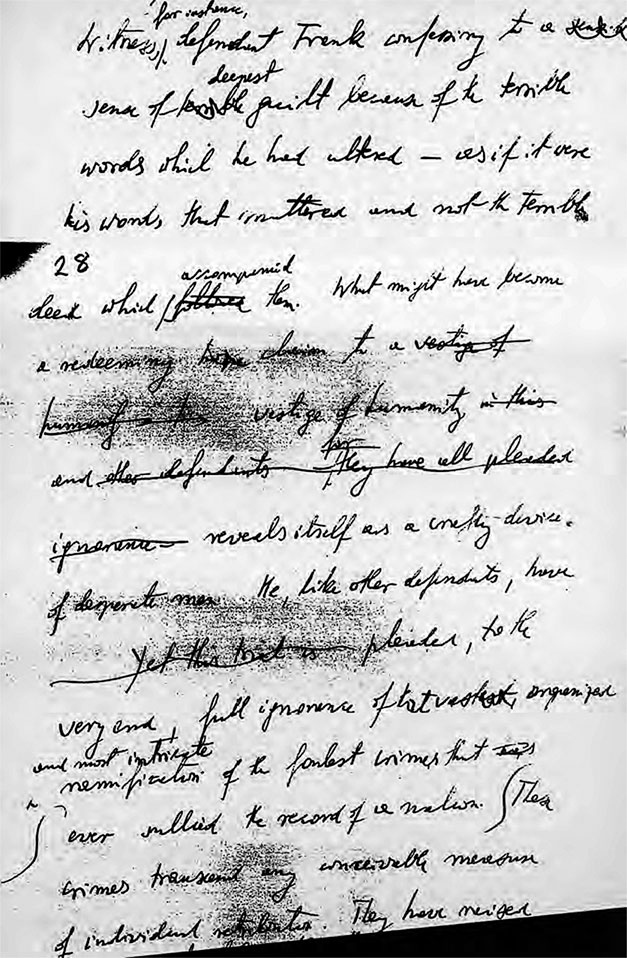 for instance,
Witness, defendant Frank confessing to a
deepest
sense of terrible guilt because of the terrible
words which he had uttered — as if it were
his words that mattered and not the terrible
28
accompanied
deed which followed them. What might have become
a redeeming claim to a vestige of
humanity vestige of humanity in this
for
and other defendants They have all pleaded
ignorance reveals itself as a crafty device
of desperate men He, like other defendants, have
Yet this trial is pleaded, to the
very end, full ignorance of that vast, organized
and most intricate
ramification of the foulest crimes that was
ever sullied the record of a nation. These
crimes transcend any conceivable measure
of individual retribution. They have raised